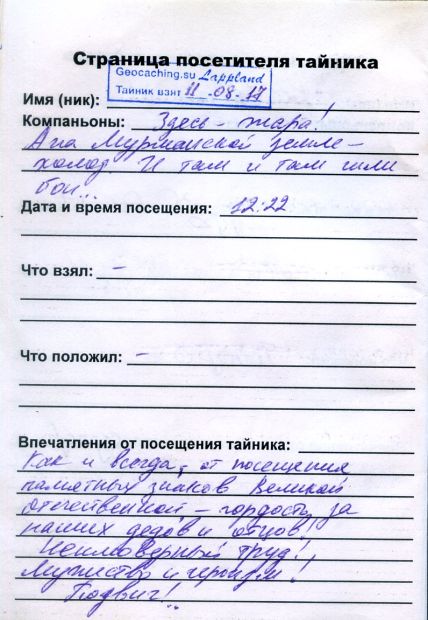 Страница посетителя тайника
Geocaching.su Lappland
Тайник взят 11-08-17
Имя (ник):
Компаньоны: Здесь - жара!
А на Мурманской земле -
холод И там и там шли
бои...
Дата и время посещения: 12:22
Что взял: -
Что положил: -
Впечатления от посещения тайника:
Как и всегда, от посещения
памятных знаков Великой
Отечественной - гордость за
наших дедов и отцов!
Неимоверный труд!,
Мужество и героизм!
Подвиг!..